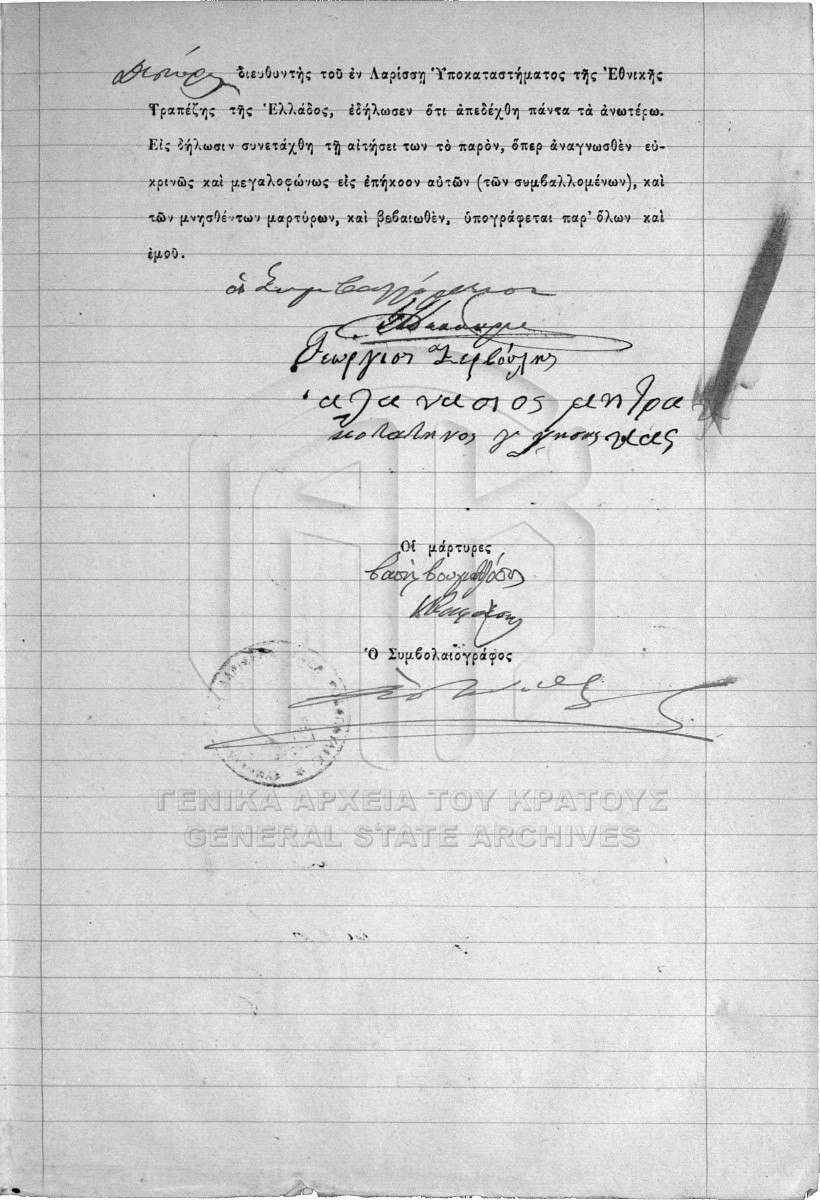 διευθυντὴς τοῦ ἐν Λαρίσσῃ Ὑποκαταστήματος τῆς Ἐθνικῆς
Τραπέζης τῆς Ἑλλάδος, ἐδήλωσεν ὅτι ἀπεδέχθη πάντα τὰ ἀνωτέρω.
Εἰς δήλωσιν συνετάχθη τῇ αἰτήσει των τὸ παρὸν, ὅπερ ἀναγνωσθὲν εὐ-
κρινῶς καὶ μεγαλοφώνως εἰς ἐπήκοον αὐτῶν (τῶν συμβαλλομένων), καὶ
τῶν μνησθέντων μαρτύρων, καὶ βεβαιωθὲν, ὑπογράφεται παρ' ὅλων καὶ
ἐμοῦ.
οἱ Συμβαλλόμενοι
Γεώργιος
αθανασιος μητρα
Οἱ μάρτυρες
Ὁ Συμβολαιογράφος
ΓΕΝΙΚΑ ΑΡΧΕΙΑ ΤΟΥ ΚΡΑΤΟΥΣ
GENERAL STATE ARCHIVES